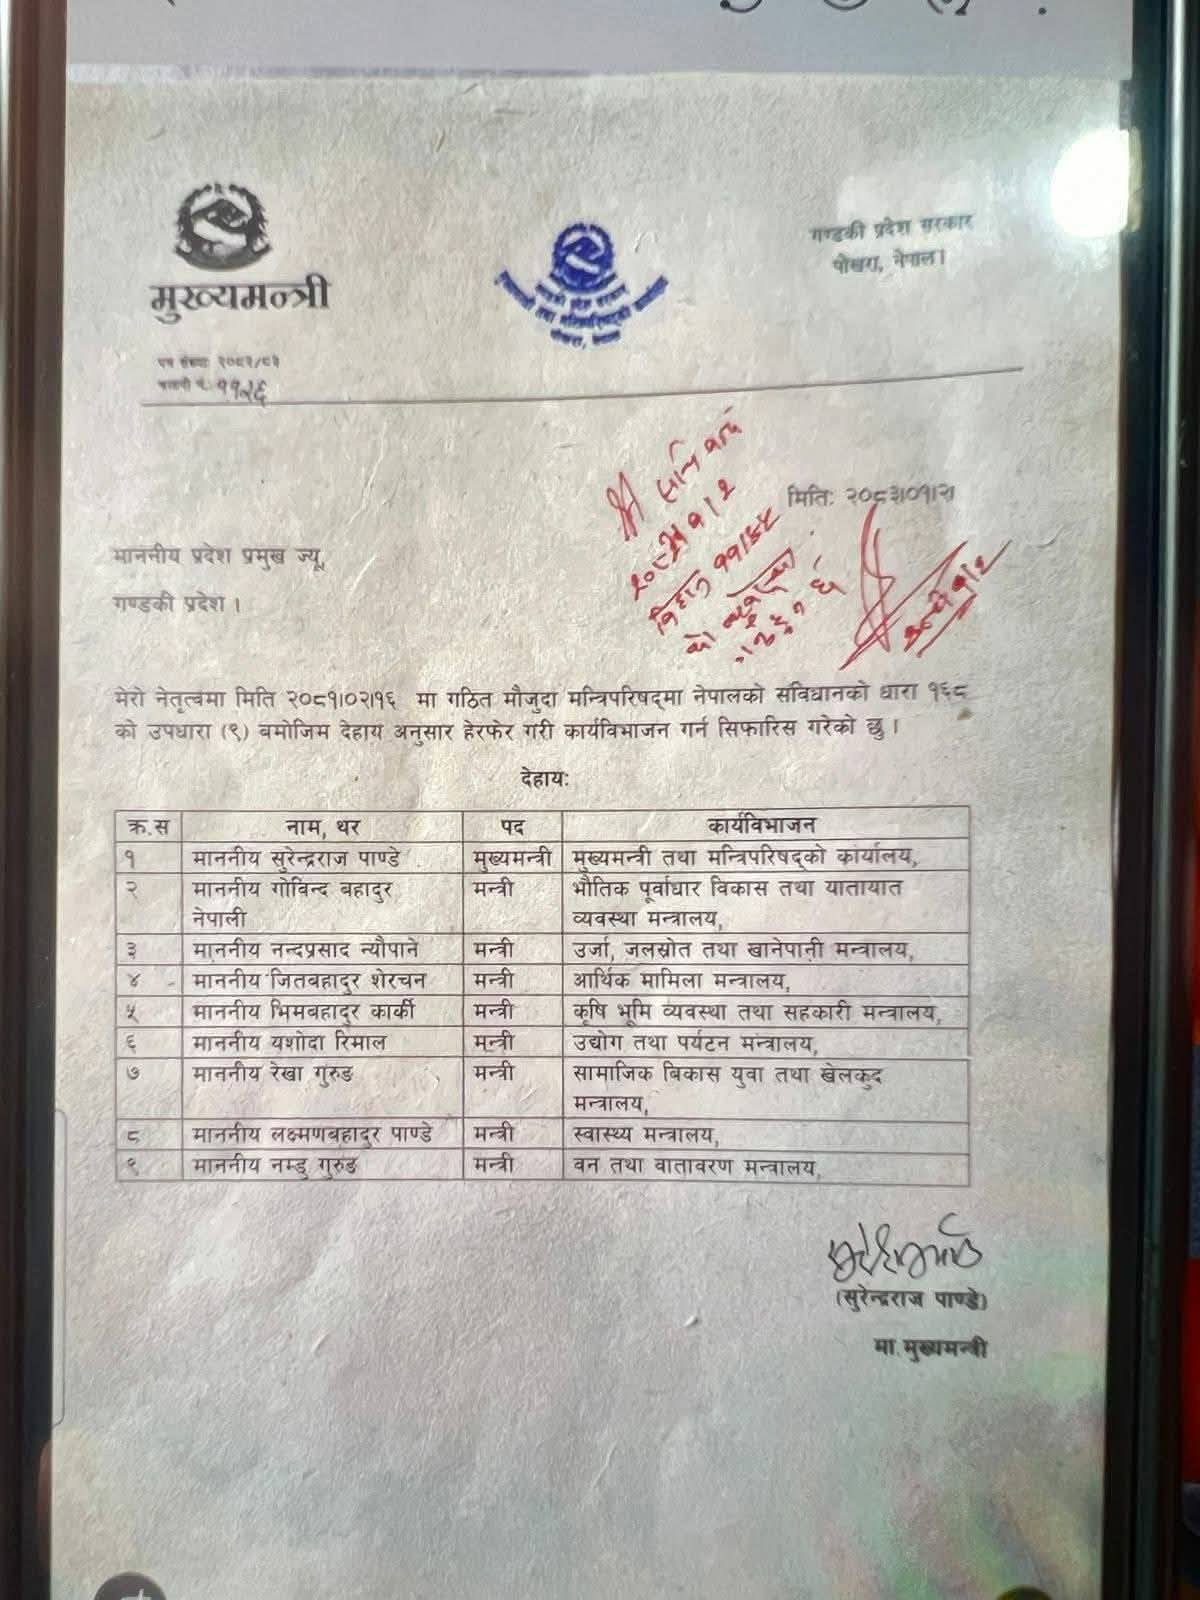 मुख्यमन्त्री
गण्डकी प्रदेश सरकार
पोखरा, नेपाल।
पत्र संख्याः २०८२/८३
चलानी नं. ११२६
मितिः २०८३।०१।२१
माननीय प्रदेश प्रमुख ज्यू,
गण्डकी प्रदेश ।
मेरो नेतृत्वमा मिति २०८१।०२।१६ मा गठित मौजुदा मन्त्रिपरिषद्मा नेपालको संविधानको धारा १६८
को उपधारा (९) बमोजिम देहाय अनुसार हेरफेर गरी कार्यविभाजन गर्न सिफारिस गरेको छु ।
देहायः
क्र.स नाम, थर पद कार्यविभाजन
१ माननीय सुरेन्द्रराज पाण्डे मुख्यमन्त्री मुख्यमन्त्री तथा मन्त्रिपरिषद्को कार्यालय,
२ माननीय गोविन्द बहादुर मन्त्री भौतिक पूर्वाधार विकास तथा यातायात
नेपाली व्यवस्था मन्त्रालय,
३ माननीय नन्दप्रसाद न्यौपाने मन्त्री उर्जा, जलस्रोत तथा खानेपानी मन्त्रालय,
४ माननीय जितबहादुर शेरचन मन्त्री आर्थिक मामिला मन्त्रालय,
५ माननीय भिमबहादुर कार्की मन्त्री कृषि भूमि व्यवस्था तथा सहकारी मन्त्रालय,
६ माननीय यशोदा रिमाल मन्त्री उद्योग तथा पर्यटन मन्त्रालय,
७ माननीय रेखा गुरुङ मन्त्री सामाजिक बिकास युवा तथा खेलकुद
मन्त्रालय,
८ माननीय लक्ष्मणबहादुर पाण्डे मन्त्री स्वास्थ्य मन्त्रालय,
९ माननीय नम्डु गुरुङ मन्त्री वन तथा वातावरण मन्त्रालय,
(सुरेन्द्रराज पाण्डे)
मा. मुख्यमन्त्री